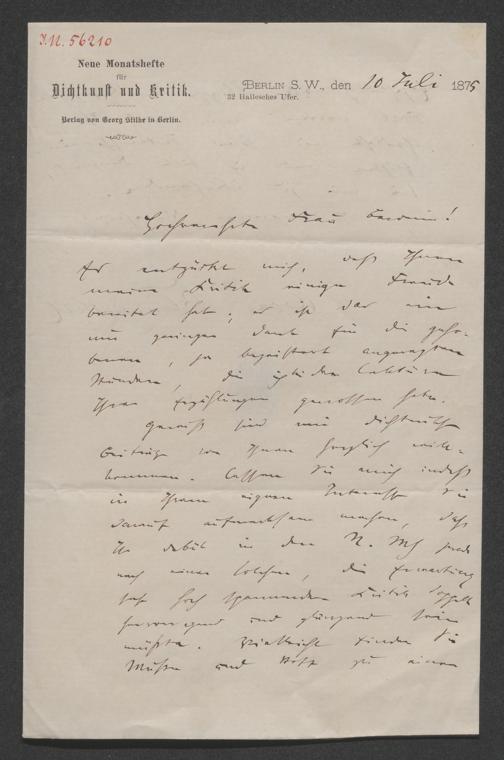 J.N. 56210
Neue Monatshefte
für
Dichtkunst und Kritik.
Verlag von Georg Stilke in Berlin.
BERLIN S. W., den 10 Juli 1875
32 Hallesches Ufer.
Hochverehrte Frau Baronin!
Es entzückt mich, daß Ihnen
meine Kritik einige Freude
bereitet hat; es ist das nur
ein geringer Dank für die geho-
benen, ja begeistert angeregten
Stunden, die ich bei der Lektüre
Ihrer Erzählungen genossen habe.
Gewiß sind mir dichterische
Beiträge von Ihnen herzlich will-
kommen. Lassen Sie mich indeß
in Ihrem eignen Interesse Sie
darauf aufmerksam machen, daß
Ihr Debüt in den N. Mh grade
nach einer solchen, die Erwartung
sehr hoch spannenden Kritik doppelt
hervorragend und glänzend sein
müßte. Vielleicht finden Sie
Muße und zu einer